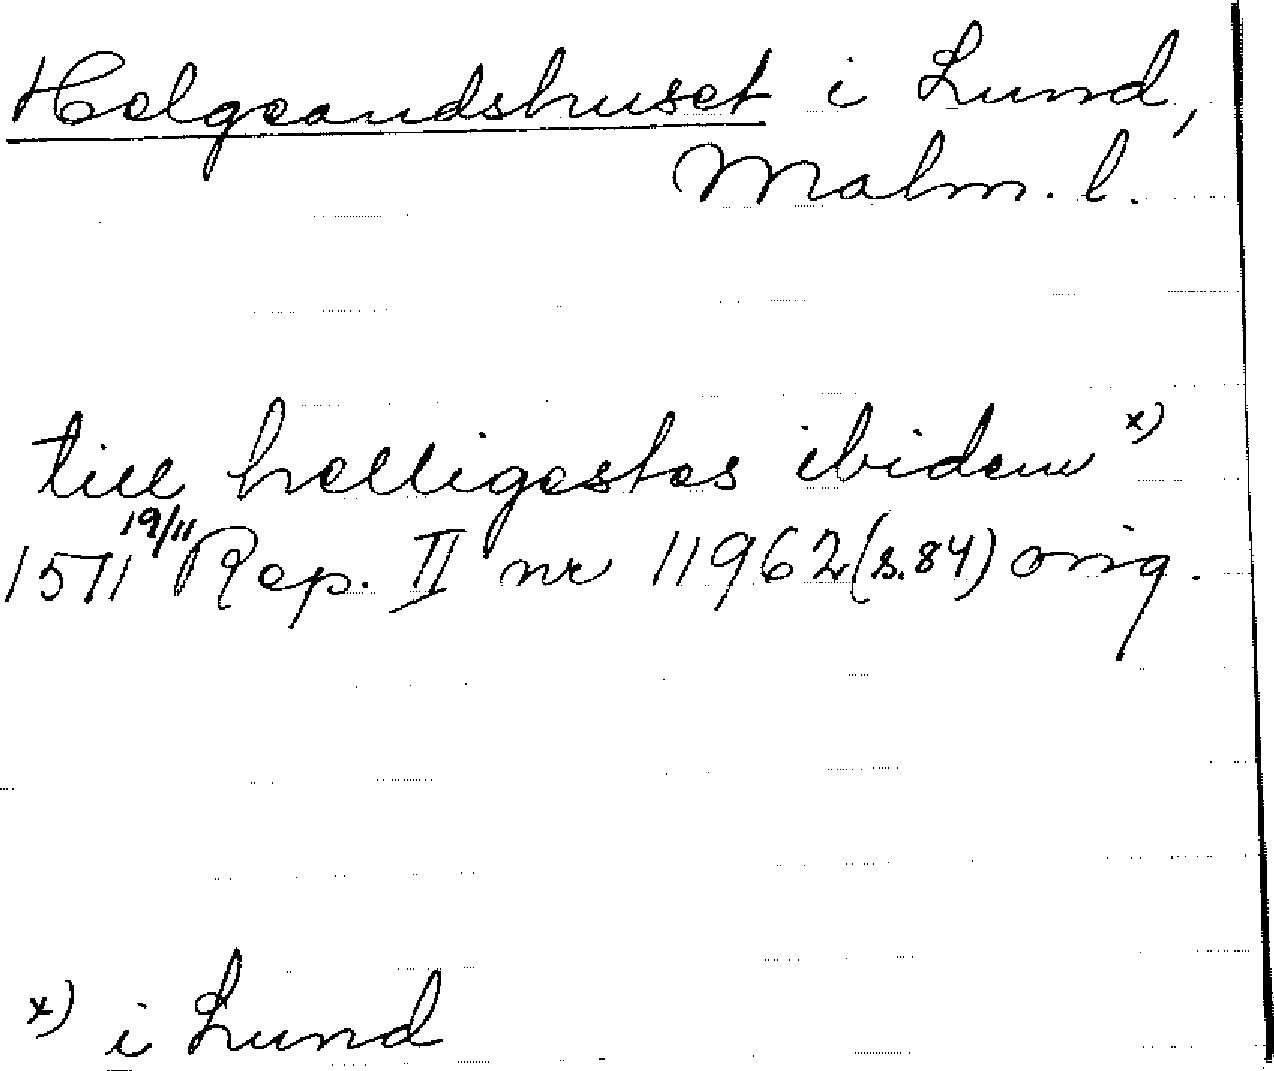 Helgeandshuset i Lund,
Malm. l.
till helligestes ibidem x)
1511 19/11 Rep. II nr 11962 (s. 84) orig.
x) i Lund